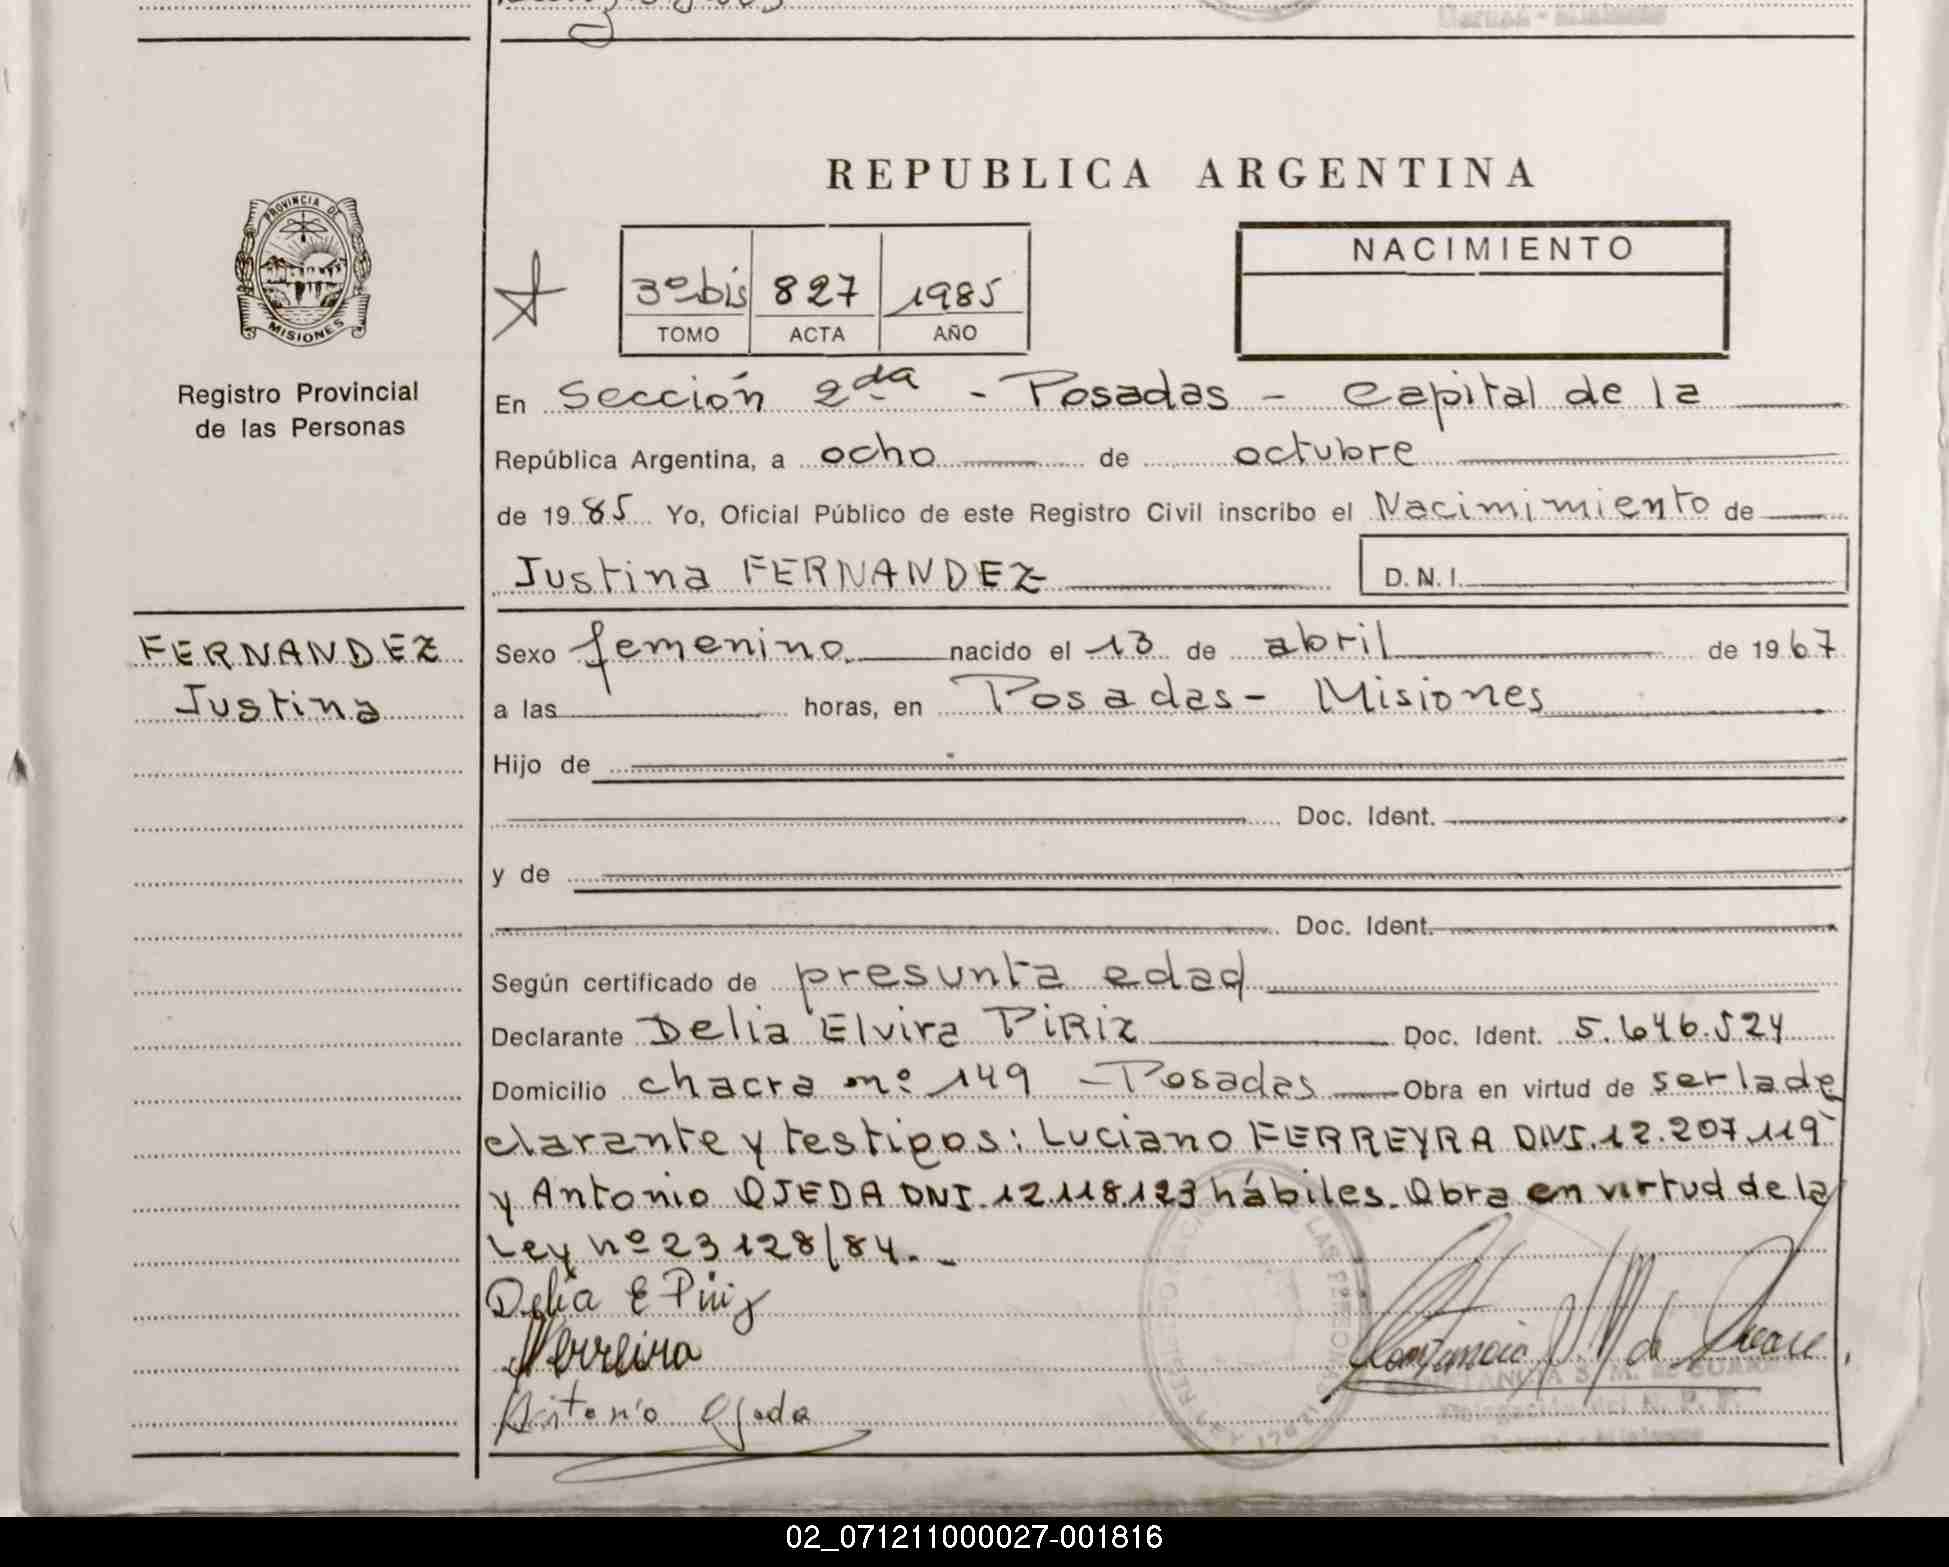 REPUBLICA ARGENTINA
PROVINCIA DE
MISIONES
Registro Provincial
de las Personas
3º bis 827 1985
TOMO ACTA AÑO
NACIMIENTO
En Sección 2da - Posadas - Capital de la
República Argentina, a ocho de octubre
de 1985 Yo, Oficial Público de este Registro Civil inscribo el Nacimimiento de
Justina FERNANDEZ D.N.I.
FERNANDEZ
Justina
Sexo femenino nacido el 13 de abril de 1967
a las horas, en Posadas - Misiones
Hijo de
Doc. Ident.
y de
Doc. Ident.
Según certificado de presunta edad
Declarante Delia Elvira PIRIZ Doc. Ident. 5.646.524
Domicilio chacra nº 149 - Posadas Obra en virtud de ser la de
clarante y testigos: Luciano FERREYRA DNI. 12.207.119
y Antonio OJEDA DNI. 12.118.123 hábiles. Obra en virtud de la
Ley nº 23128/84.-
Delia E Piriz
Ferreira
Antonio Ojeda
CONSTANCIA S. M. DE
Delegación del R. P. P.
Misiones
02_071211000027-001816